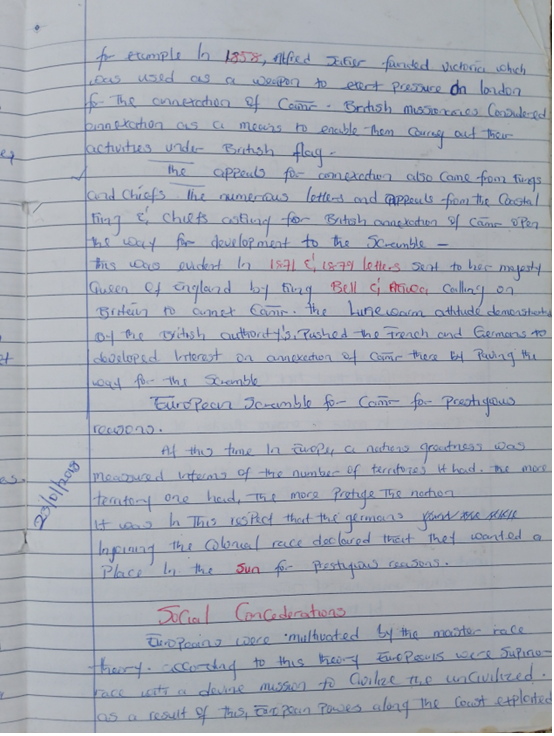 for example In 1858, Alfred Saker founded Victoria which
was used as a weapon to exert pressure on london
for the annexation of Camr. British missionaries Considered
annexation as a means to enable them Carry out their
activities under British flag.
The appeals for annexation also came from Kings
and Chiefs. The numerous letters and appeals from the Coastal
King & Chiefs asking for British annexation of Camr open
the way for development to the Scramble -
this was evident In 1871 & 1879 letters sent to her majesty
Queen of England by King Bell & Akwa, Calling on
Britain to annex Camr. the Lukewarm attitude demonstrated
by the British authority's, Pushed the French and Germans to
developed Interest on annexation of Camr there by Paving the
way for the Scramble
European Scramble for Camr for Prestigious
reasons.
At this time In Europe, a nations greatness was
measured interms of the number of territories it had. the more
territory one had, the more Pretige the nation
It was In this respect that the germans
Injoining the Colonial race declared that they wanted a
Place In the Sun for Prestigious reasons.
23/01/2018
Social Concederations
Europeans were multivated by the master race
theory. according to this theory Europeans were Superior
race with a devine mission to Civilize the uncivilized.
as a result of this, European Powers along the Coast exploited